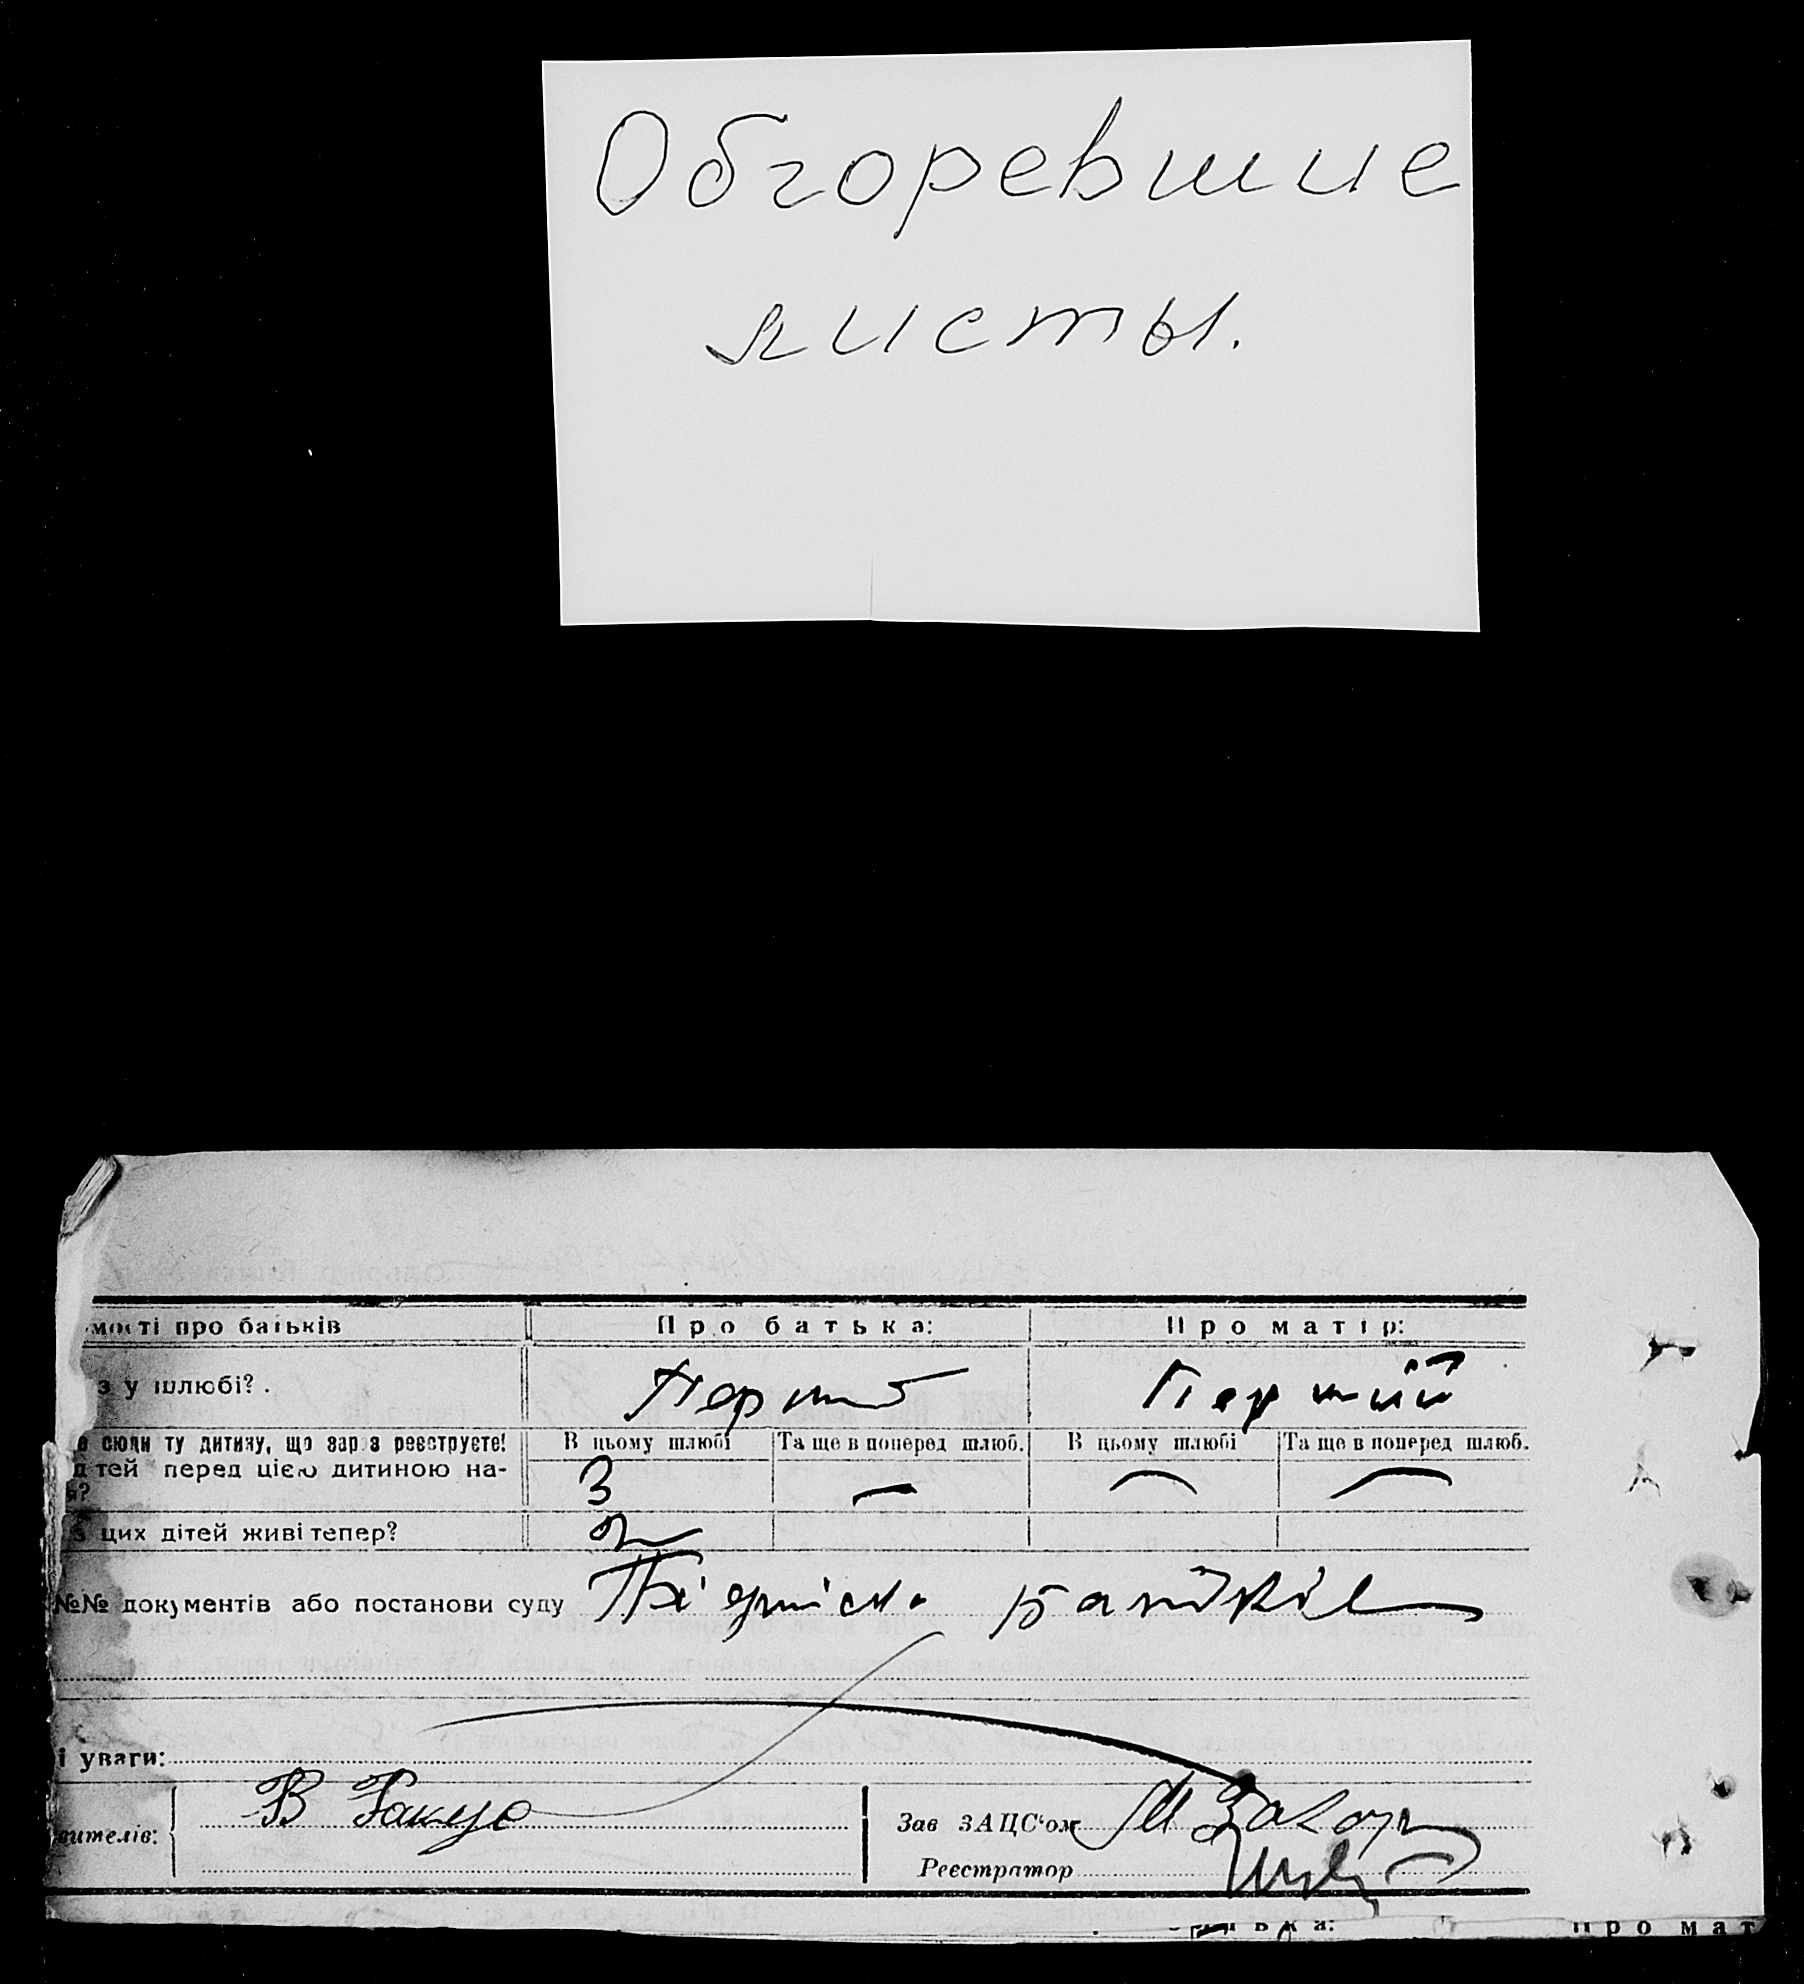 Обгоревшие
листы.
мості про батьків Про батька: Про матір:
з у шлюбі? . Перший
е сюди ту дитину, що зараз реєструєте! В цьому шлюбі Та ще в поперед шлюб. В цьому шлюбі Та ще в поперед шлюб.
д тей перед цією дитиною на- 3 — — —
я?
з цих дітей живі тепер? 2
№№ документів або постанови суду батьків
і уваги:
вителів: В Зав ЗАЦС'ом М
Реєстратор
ька: Про мат